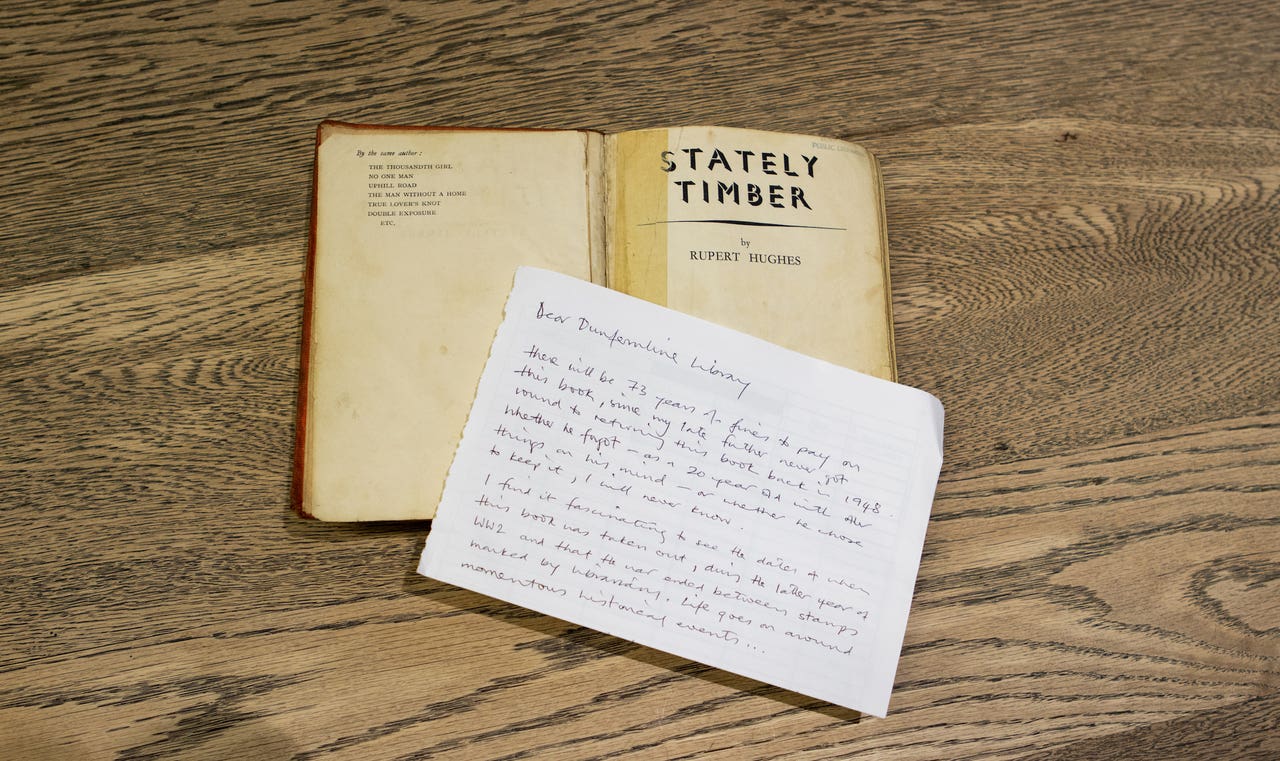 By the same author :
THE THOUSANDTH GIRL
NO ONE MAN
UPHILL ROAD
THE MAN WITHOUT A HOME
TRUE LOVER'S KNOT
DOUBLE EXPOSURE
ETC.
PUBLIC
STATELY
TIMBER
by
RUPERT HUGHES
Dear Dunfermline Library
there will be 73 years of fines to pay on
this book, since my late father never got
round to returning this book back in 1948.
Whether he forgot – as a 20 year old with other
things on his mind – or whether he chose
to keep it, I will never know.
I find it fascinating to see the dates of when
this book was taken out, during the latter year of
WW2 and that the war ended between stamps
marked by librarians. Life goes on around
momentous historical events...